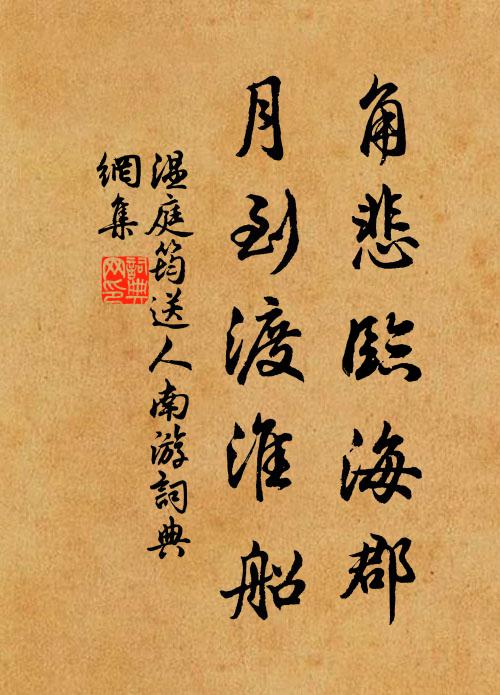 角悲臨海郡
月到渡淮船
温庭筠送人南游詞典
網集
詞典
网印